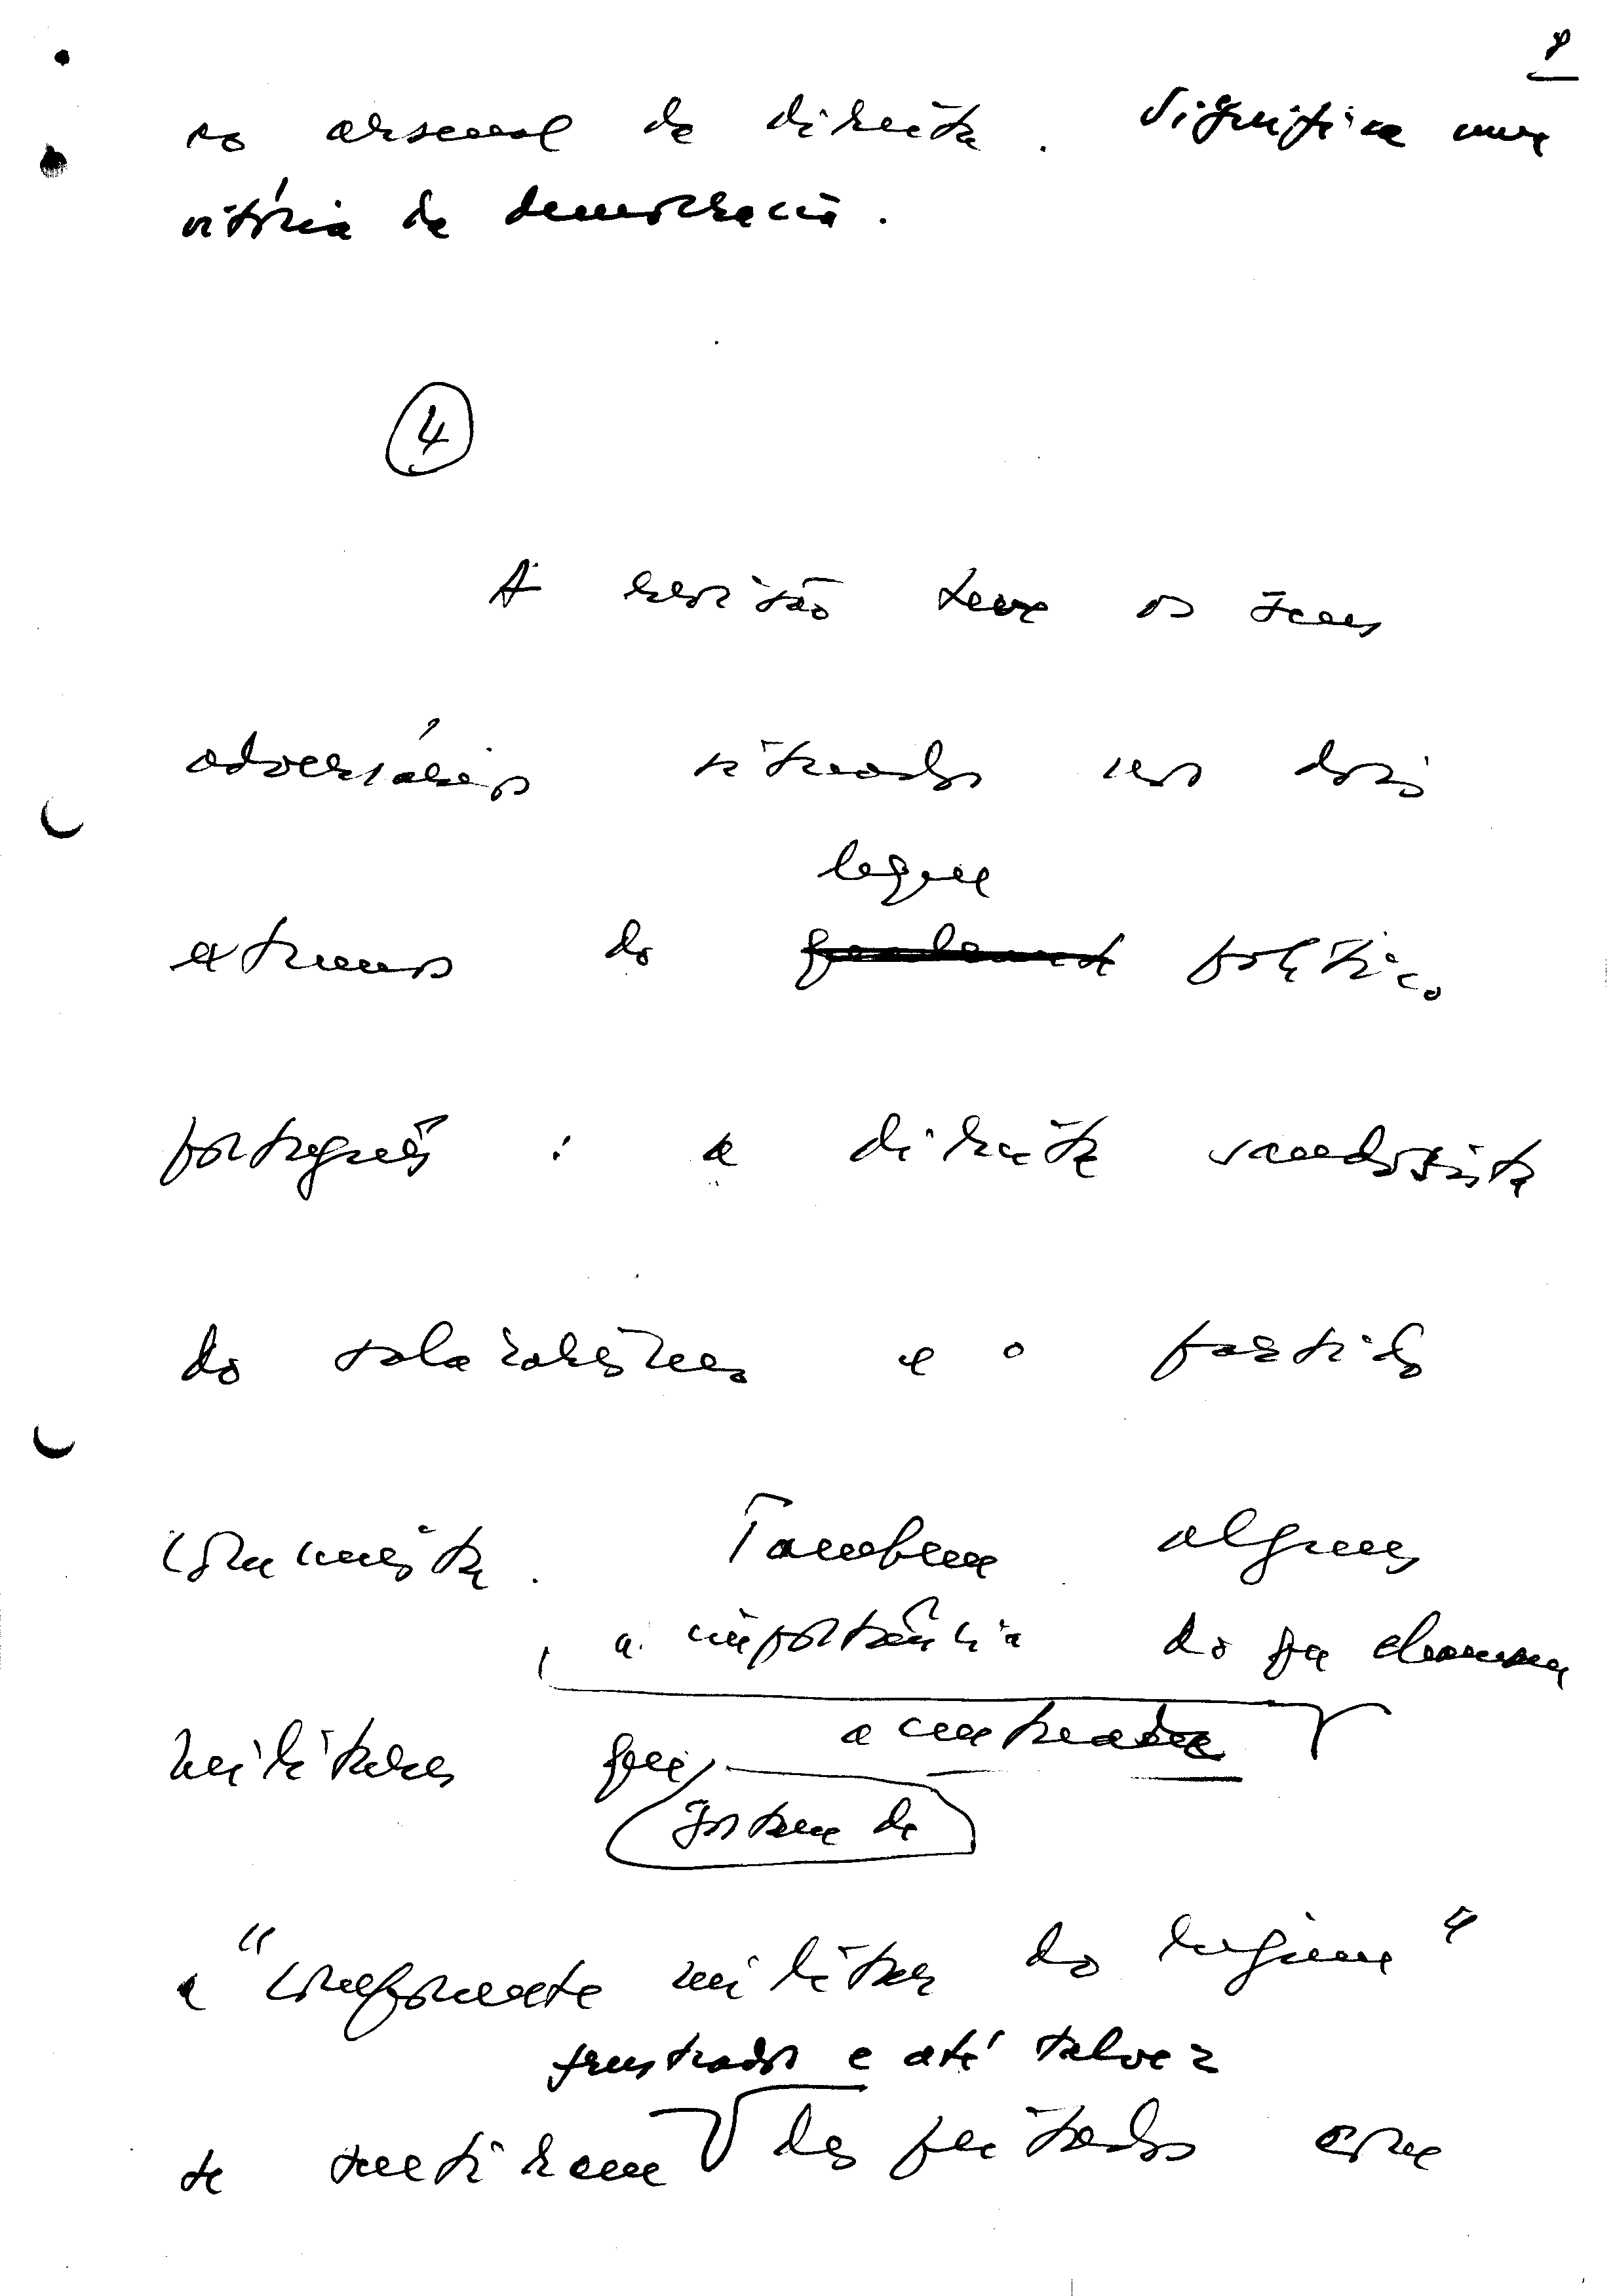 8
ao arsenal da direita. Significa uma
vitória da democracia.
4
A revisão teve os seus
adversários situados nos dois
leque
extremos do político
português: a direita saudosista
do salazarismo e o partido
comunista. Também alguns
a importância do que chamam
militares que, acentuada
gostam de
a "componente militar do regime"
frustrados e até talvez
se sentiram despeitados com